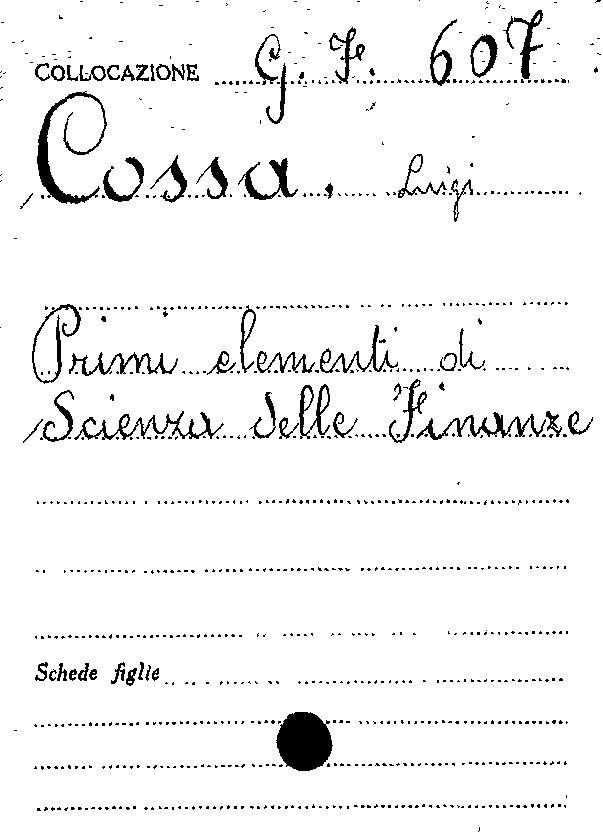 COLLOCAZIONE G. F. 607
Cossa. Luigi
Primi elementi di
Scienza delle Finanze
Schede figlie